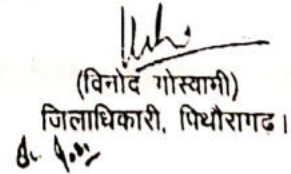 (विनोद गोस्वामी)
जिलाधिकारी, पिथौरागढ।